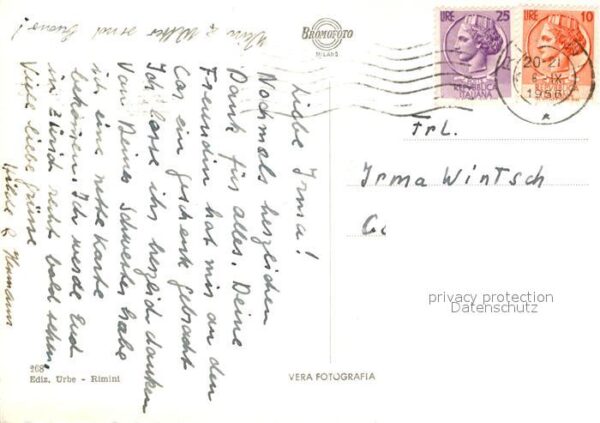 Liebe Irma!
Nochmals herzlichen
Dank für alles. Deine
Freundin hat mir an den
Car ein geschenk gebracht
Ich lasse ihr herzlich danken
Von Deiner Schwester habe
ich eine nette Karte
bekommen. Ich werde Euch
in Zürich recht bald sehen.
Viele liebe grüsse
Hilde & Hermann
sind
BROMOFOTO
MILANO
LIRE 25
REPUBBLICA
ITALIANA
LIRE 10
REPUBBLICA
ITALIANA
20-21
6-IX
1956
Frl.
Irma Wintsch
privacy protection
Datenschutz
268
Ediz. Urbe - Rimini
VERA FOTOGRAFIA